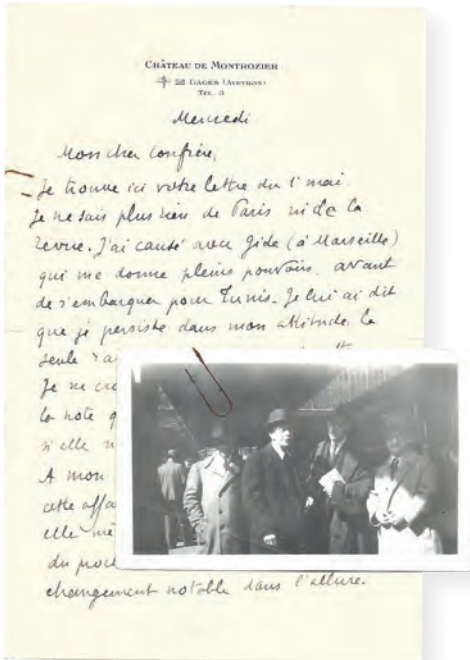 CHÂTEAU DE MONTROZIER
GAGES (AVEYRON)
TÉL. 3
Mercredi
Mon cher Confrère,
Je trouve ici votre lettre du 1er mai.
Je ne sais plus rien de Paris ni de la
revue. J'ai causé avec Gide (à Marseille)
qui me donne pleins pouvoirs, avant
de s'embarquer pour Tunis. Je lui ai dit
que je persiste dans mon attitude, la
seule
Je ne
la note
si elle
A mon
cette
elle
du
changement notable dans l'allure.